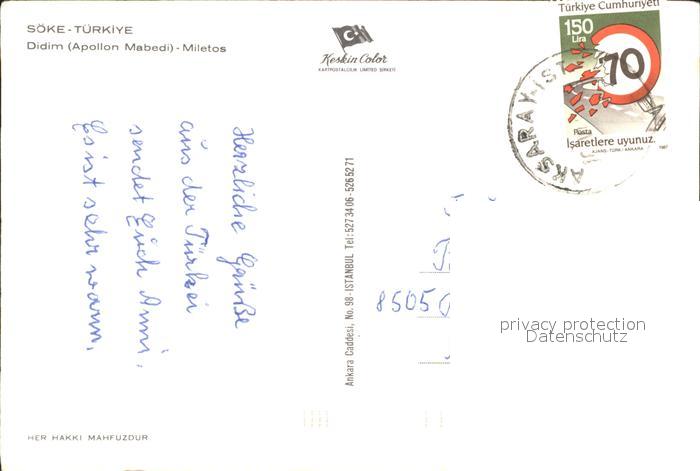 SÖKE - TÜRKİYE
Didim (Apollon Mabedi) - Miletos
Keskin Color
KARTPOSTALCILIK LIMITED ŞİRKETİ
Türkiye Cumhuriyeti
150
Lira
70
Posta
İşaretlere uyunuz.
AJANS-TÜRK-ANKARA
1987
AKSARAY-İST
Herzliche Grüße
aus der Türkei
sendet Euch Anni.
Es ist sehr warm.
Ankara Caddesi, No. 98 - İSTANBUL Tel: 5273406 - 5265271
8505
privacy protection
Datenschutz
HER HAKKI MAHFUZDUR